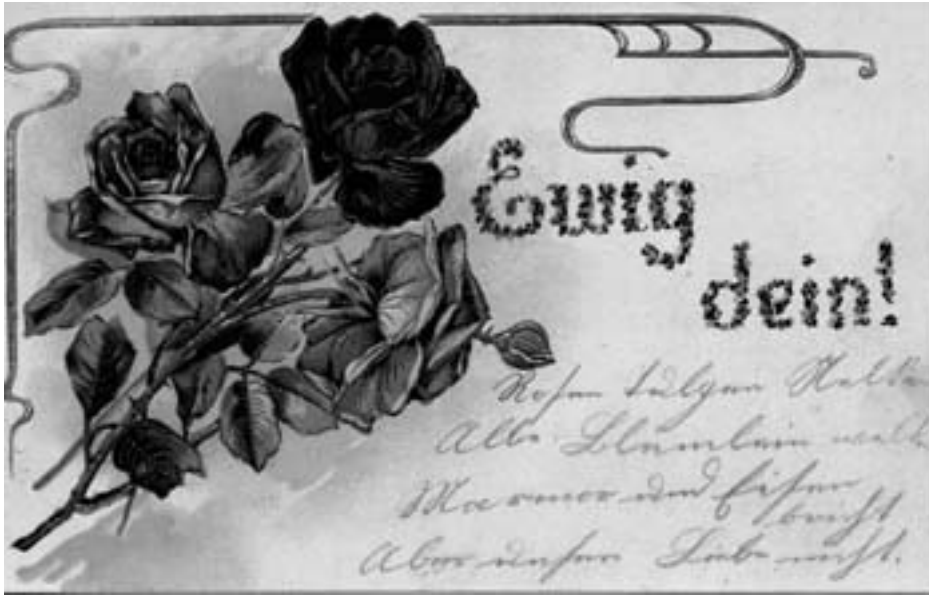 Ewig
dein!
Rosen Tulpen Nelke
Alle Blümlein welk
Marmor und Eisen
bricht
Aber unsere Liebe nicht.